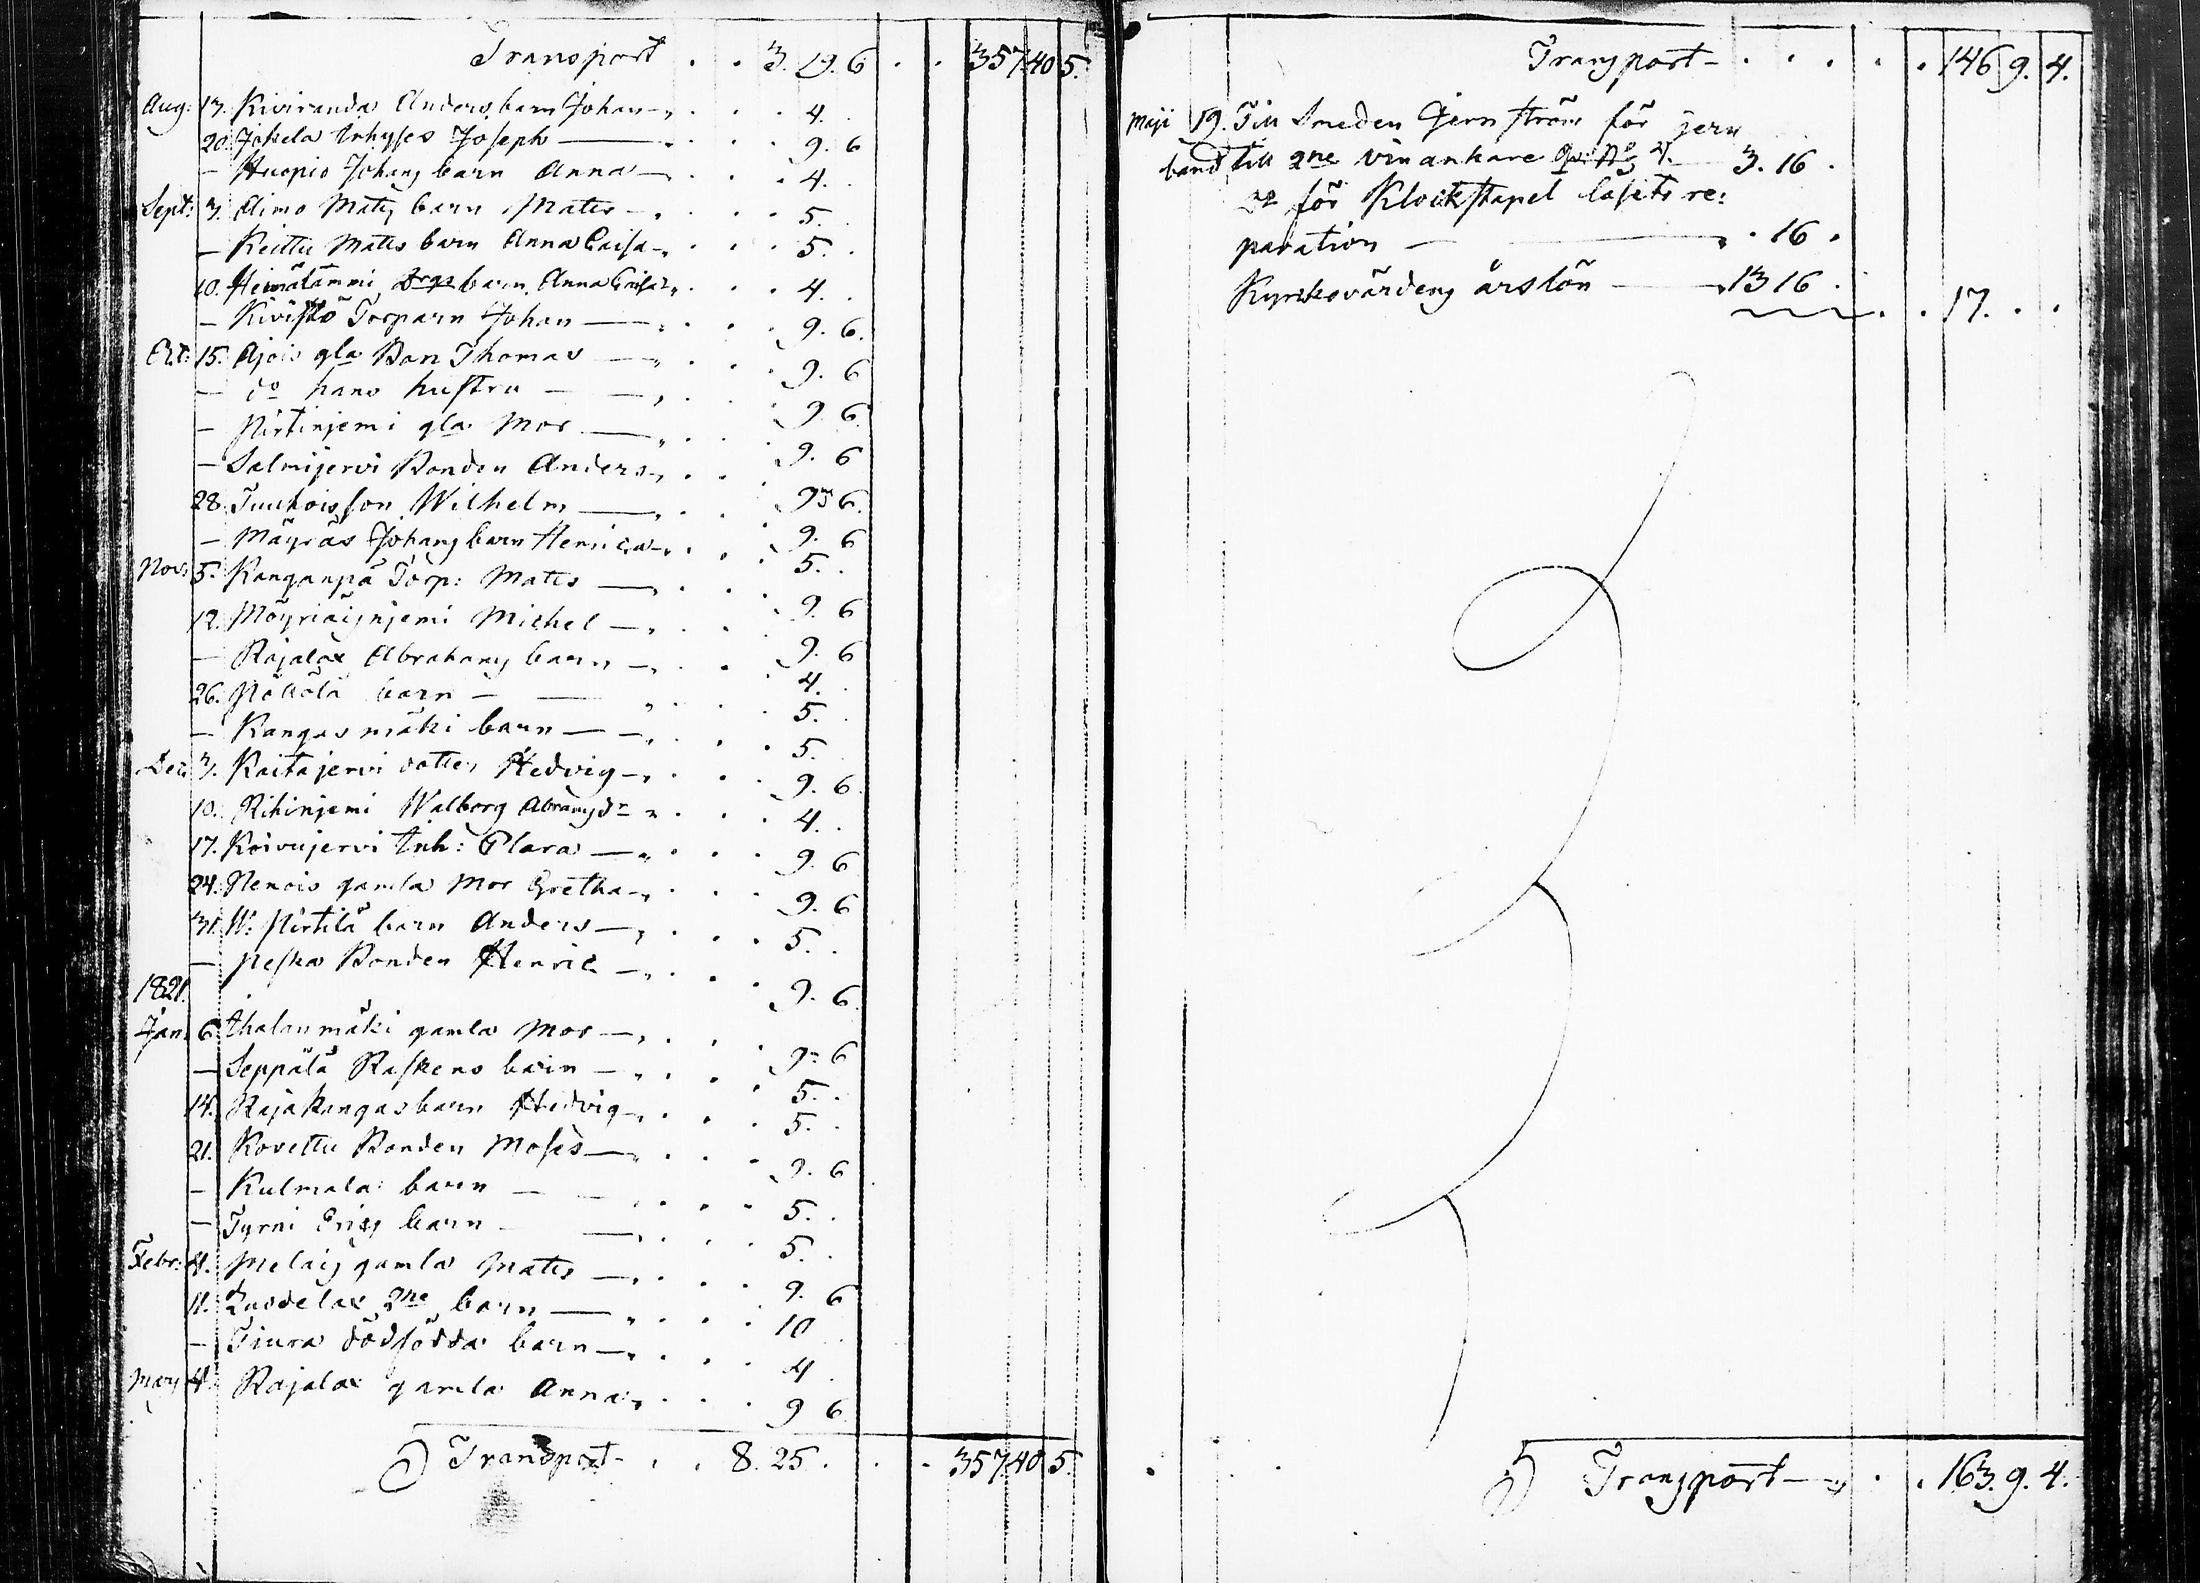 Transport . . 3. 19. 6 . . 357. 40 5.
Aug: 13. Kiviranda Anders barn Johan 4.
20. Jokela Inhyses Joseph 9. 6
— Huopio Johans barn Anna 4.
Sept: 3. Aimo Mats barn Mats 5.
— Keittu Mats barn Anna Caisa 5.
10. Heinälammi barn Anna Caisa 4.
— Kivistö Torparn Johan 9. 6.
Oct: 15. Ajois gla Bon Thomas 9. 6
— do hans hustru 9. 6
— Pirtinjemi gla Mor 9. 6
— Salmijervi Bonden Anders 9. 6.
28. Tuukois son Wilhelm 9. 6
— Mäyräs Johans barn Henrica 5.
Nov: 5. Kanganpä Torp: Mats 9. 6
12. Michel 9. 6
— Rajalax Abrahams barn 4.
26. barn 5.
— Kangasmäki barn 5.
Dec: 3. Kaitajervi dotter Hedvig 9. 6.
10. Rihinjemi Walborg Abramsdr 4.
17. Koivujervi Inh: Clara 9. 6
24. Nenois gamla Mor Gretha 9. 6
31. W: Pirtilä barn Anders 5.
— Peska Bonden Henric 9. 6.
1821.
Jan: 6. Ahalanmäki gamla Mor 9. 6
— Seppälä Raskens barn 5.
14. Rajakangas barn Hedvig 5.
21. Kovettu Bonden Moses 9. 6
— Kulmala barn 5.
— Tyrni Erics barn 5.
Febr: 4. Melais gamla Mats 9. 6
11. Luodelax 2ne barn 10
— Tiura dödfödda barn 4.
Mars 4. Rajalax gamla Anna 9 6
Transport . . 8. 25. . . 357. 40 5.
Transport . . . . . . 146 9. 4.
Maji 19. Till Smeden Gjernström för jern
band till 2ne vinankare No 3. 16.
do för Klockstapel låsets re:
paration . 16.
Kyrkovärdens årslön 13 16.
17. . .
Transport . . 163. 9. 4.